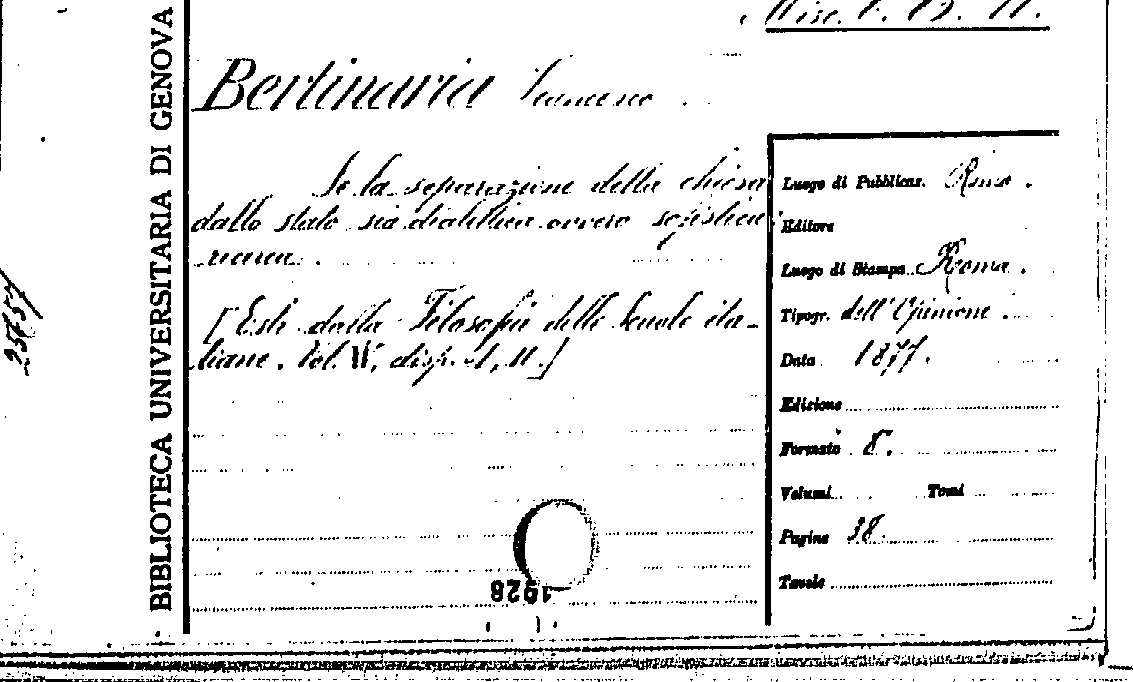 BIBLIOTECA UNIVERSITARIA DI GENOVA
Misc. C. 11.
Bertinaria Francesco
Se la separazione della chiesa
dallo stato sia dialettica ovvero sofistica
ricerca.
[Estr. dalla Filosofia delle Scuole ita-
liane. Vol. , disp. 1, ]
Luogo di Pubblicaz. Roma.
Editore
Luogo di Stampa Roma.
Tipogr. dell'Opinione.
Data 1877.
Edizione
Formato 8.
Volumi Tomi
Pagine 38.
Tavole
1928